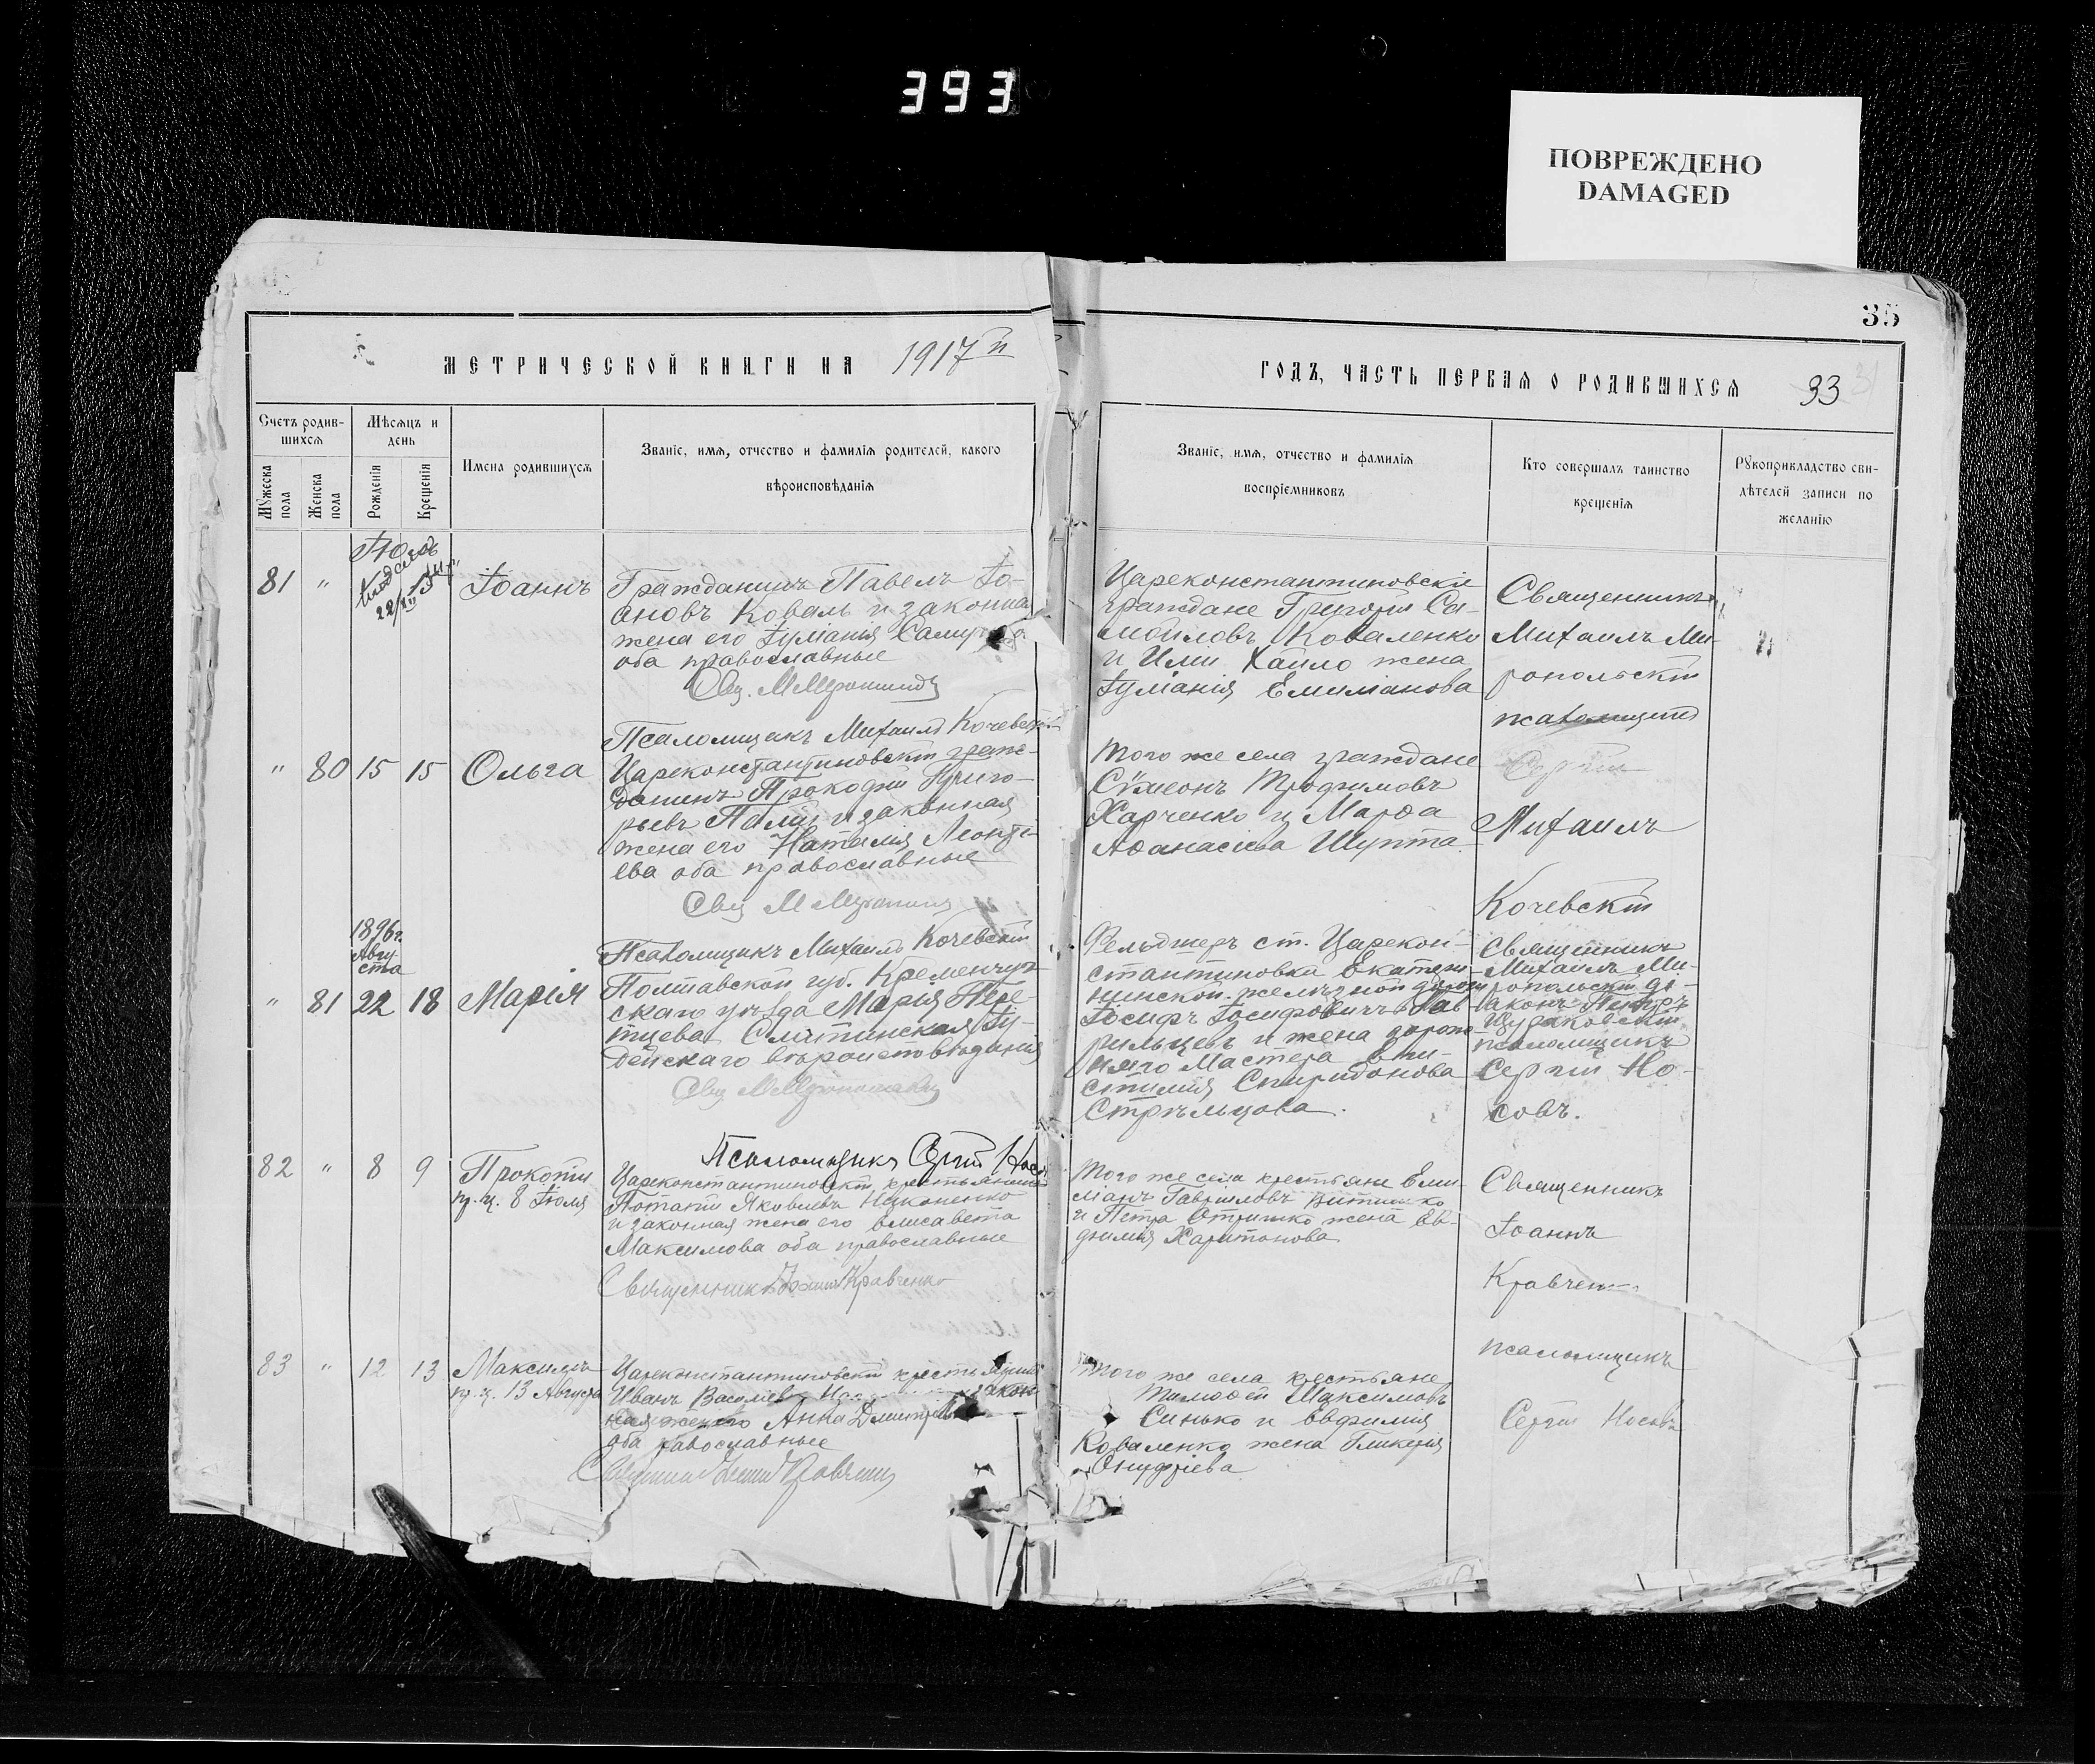 393
ПОВРЕЖДЕНО
DAMAGED
35
МЕТРИЧЕСКОЙ КНИГИ НА 1917й
ГОДЪ, ЧАСТЬ ПЕРВАЯ О РОДИВШИХСЯ 33
Счетъ родив-
шихся
Мужеска
пола
Женска
пола
Мѣсяцъ и
день
Рожденія
Крещенія
Имена родившихся
Званіе, имя, отчество и фамилія родителей, какого
вѣроисповѣданія
Званіе, имя, отчество и фамилія
воспріемниковъ
Кто совершалъ таинство
крещенія
Рукоприкладство сви-
дѣтелей записи по
желанію
81 " Іоаннъ
Гражданинъ Павелъ Іо-
ановъ Коваль и законная
жена его Іуліанія
оба православные
Цареконстантиновскіе
граждане Григорій Са-
мойловъ Коваленко
и Иліи Хайло жена
Іуліанія Емиліанова
Священникъ
Михаилъ Ми-
ропольскій
псаломщикъ
Псаломщикъ Михаилъ Кочевскій
" 80 15 15 Ольга
Цареконстантиновскій граж-
данинъ Прокофій Григо-
рьевъ Палій и законная
жена его Наталія Леонтi-
ева оба православные
Того же села граждане
Сѵмеонъ Трофимовъ
Харченко и Марѳа
Аѳанасіева Шупта
Сергій
Михаилъ
Кочевскій
Псаломщикъ Михаилъ Кочевскій
1896г.
Авгу-
ста
" 81 22 18 Марія
Полтавской губ. Кременчуг-
скаго уѣзда Марія Пере-
тцева Іу-
дейскаго вѣроисповѣданія
Фельдшеръ ст. Царекон-
стантиновка Екатери-
нинской желѣзной дороги
Іосифъ Іосифовичъ Гав-
рильцевъ и жена дорож-
наго мастера
Спиридонова
Стрѣльцова.
Священникъ
Михаилъ Ми-
ропольскій ді-
аконъ Петръ
псаломщикъ
Сергій Но-
совъ.
Псаломщикъ Сергій Носовъ
82 " 8 9 Прокопій
пр. ч. 8 Іюля
Цареконстантиновскій крестьянинъ
Потапій Яковлевъ
и законная жена его Елисавета
Максимова оба православные
Священникъ Іоаннъ Кравченко
Того же села крестьяне Еми-
ліанъ Гавриловъ
и Петра Отришко жена Ев-
фимія Харитонова
Священникъ
Іоаннъ
Кравчен
псаломщикъ
Сергій Носовъ
83 " 12 13 Максимъ
пр. ч. 13 Августа
Цареконстантиновскій крестьянинъ
Иванъ Васильевъ закон-
ная жена его Анна Дмитріева
оба православные
Того же села крестьяне
Тимоѳей Максимовъ
Синько и Евфимія
Коваленко жена Гликерія
Онуфріева